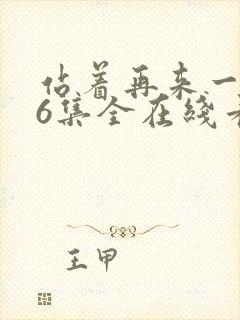 佔着再来一
6集全在线看
王甲